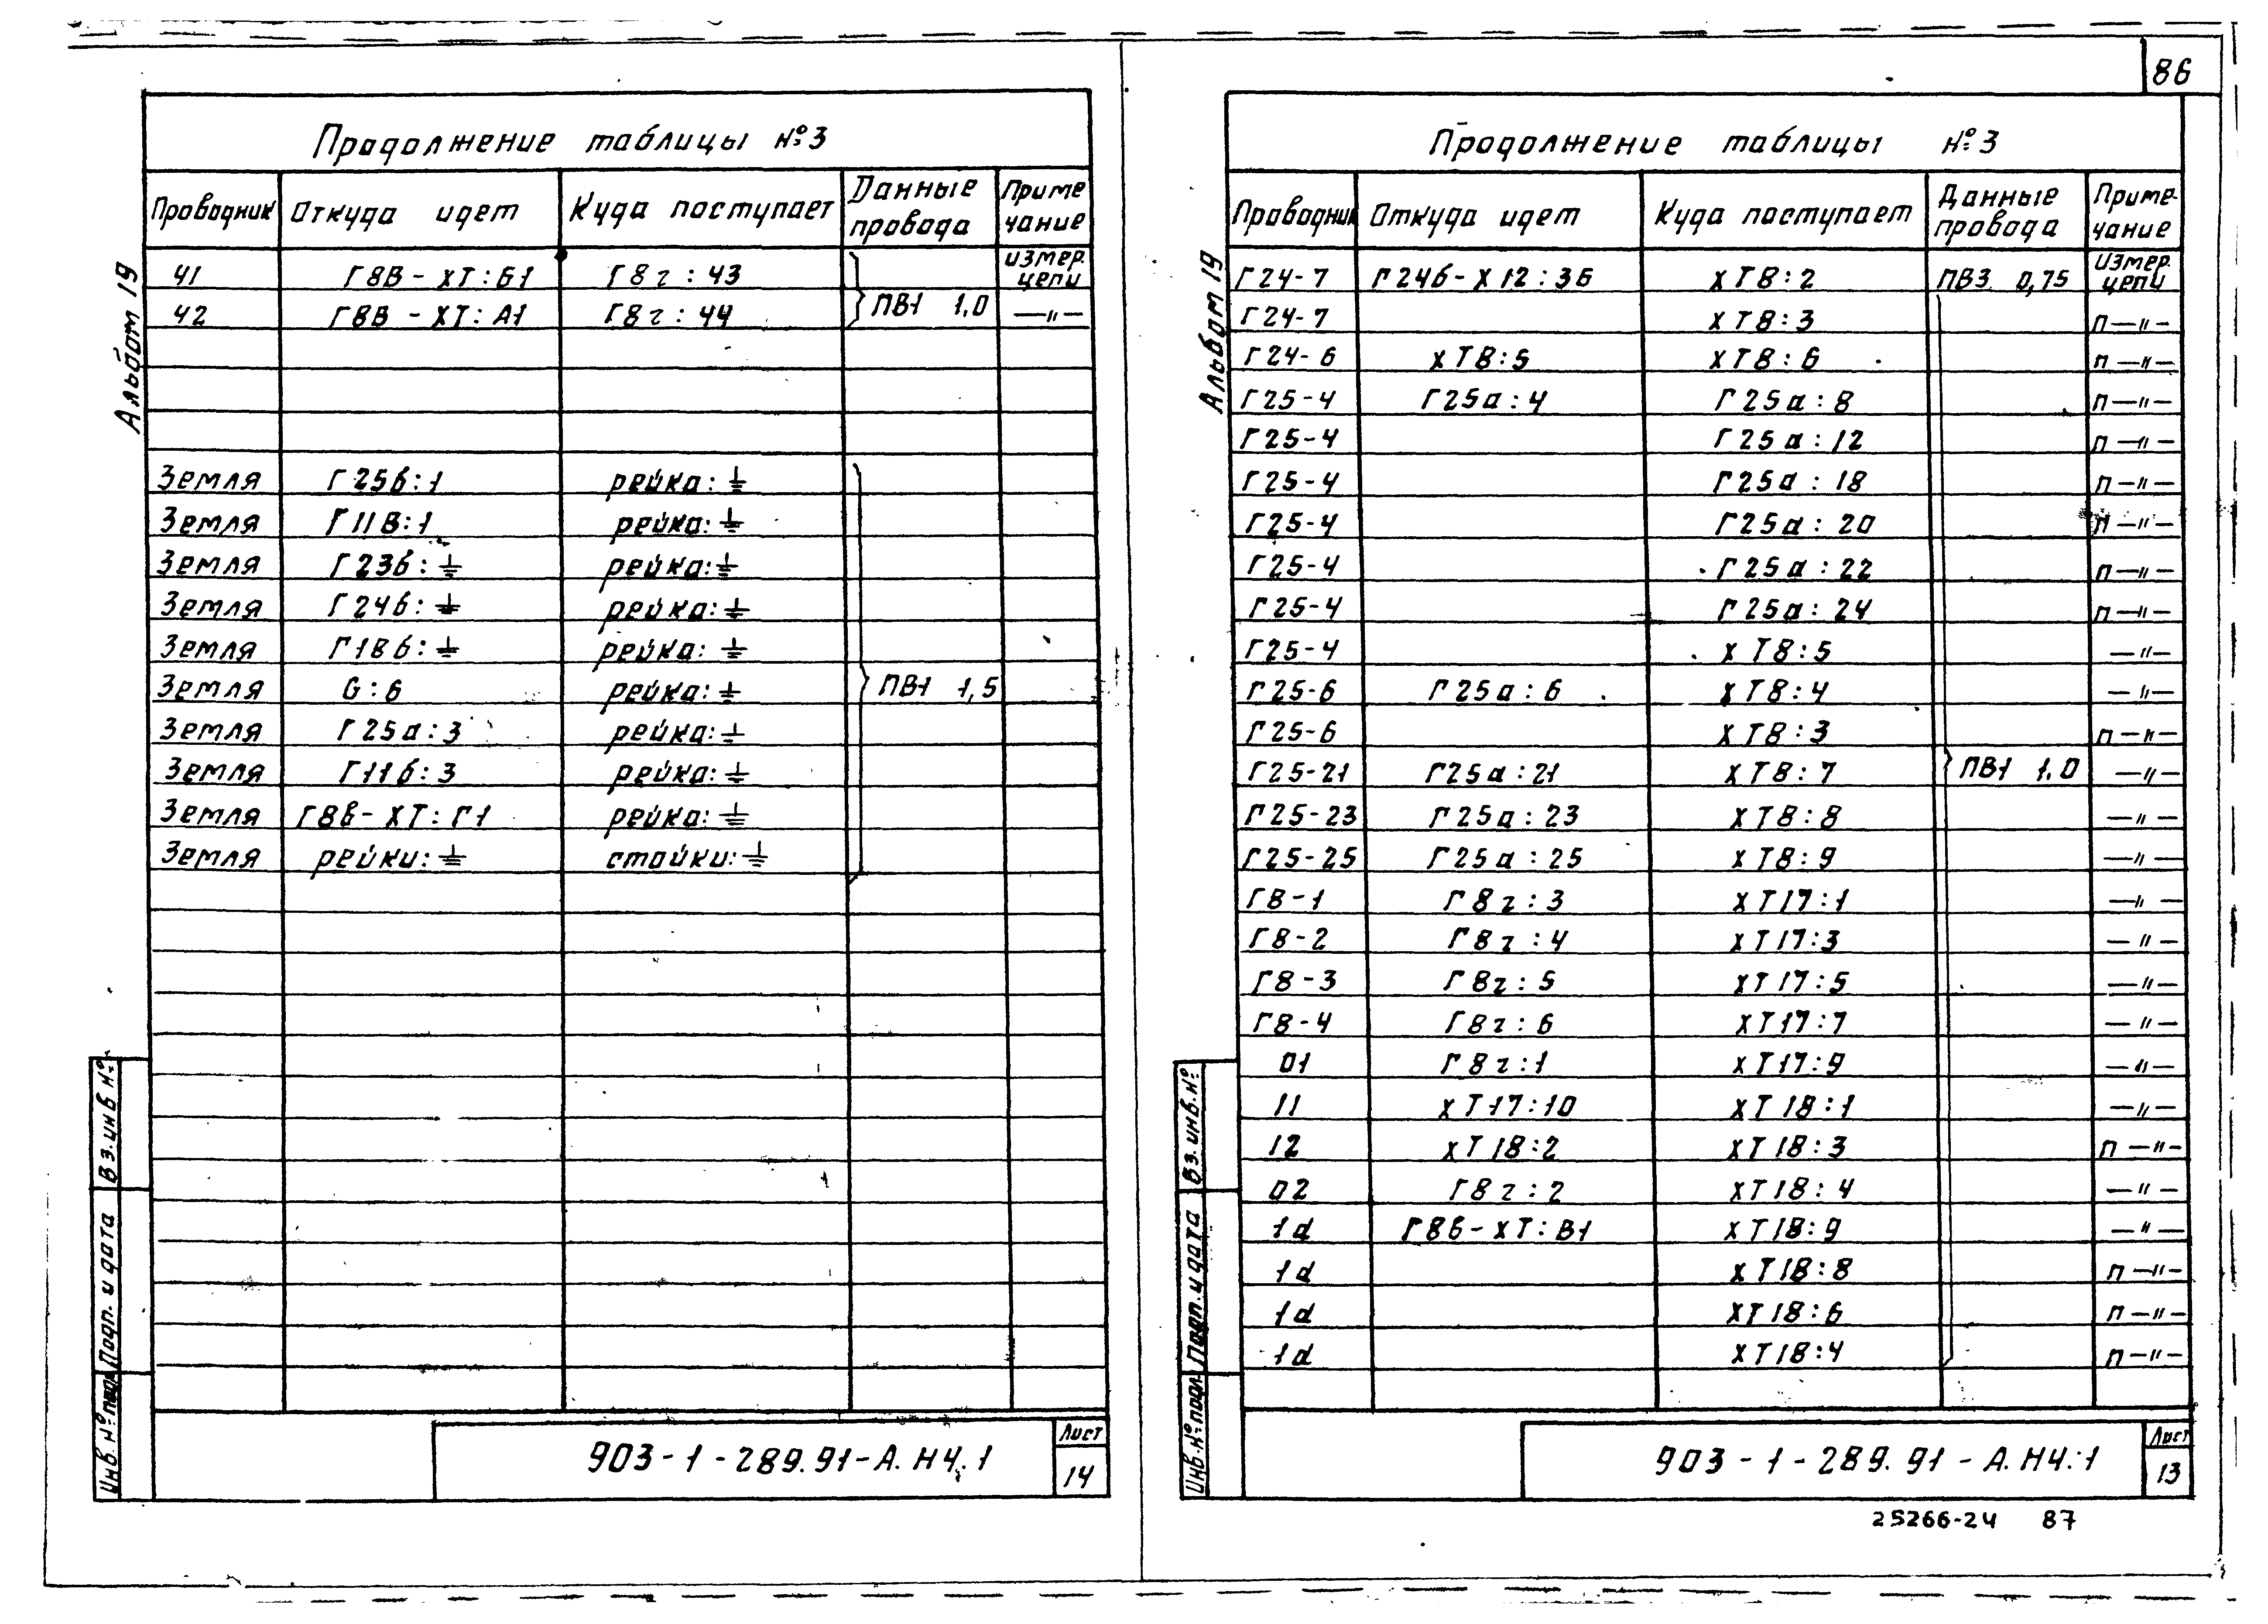 86
Альбом 19
Продолжение таблицы №3
Проводник Откуда идет Куда поступает Данные провода Примечание
41 Г8В-ХТ:Б1 Г8г:43 измер. цепи
42 Г8В-ХТ:А1 Г8г:44 ПВ1 1,0 —"—
Земля Г25б:1 рейка:⏚
Земля Г11В:1 рейка:⏚
Земля Г23б:⏚ рейка:⏚
Земля Г24б:⏚ рейка:⏚
Земля Г18б:⏚ рейка:⏚
Земля G:6 рейка:⏚ ПВ1 1,5
Земля Г25а:3 рейка:⏚
Земля Г11б:3 рейка:⏚
Земля Г8в-ХТ:Г1 рейка:⏚
Земля рейки:⏚ стойки:⏚
Инв. № подл. Подп. и дата Вз. инв №
903-1-289.91-А.Н4.1
Лист
14
Альбом 19
Продолжение таблицы №3
Проводник Откуда идет Куда поступает Данные провода Примечание
Г24-7 Г24б-Х12:36 ХТ8:2 ПВ3 0,75 измер. цепи
Г24-7 ХТ8:3 п—"—
Г24-6 ХТ8:5 ХТ8:6 п—"—
Г25-4 Г25а:4 Г25а:8 п—"—
Г25-4 Г25а:12 п—"—
Г25-4 Г25а:18 п—"—
Г25-4 Г25а:20 п—"—
Г25-4 Г25а:22 п—"—
Г25-4 Г25а:24 п—"—
Г25-4 ХТ8:5 —"—
Г25-6 Г25а:6 ХТ8:4 —"—
Г25-6 ХТ8:3 п—"—
Г25-21 Г25а:21 ХТ8:7 ПВ1 1.0 —"—
Г25-23 Г25а:23 ХТ8:8 —"—
Г25-25 Г25а:25 ХТ8:9 —"—
Г8-1 Г8г:3 ХТ17:1 —"—
Г8-2 Г8г:4 ХТ17:3 —"—
Г8-3 Г8г:5 ХТ17:5 —"—
Г8-4 Г8г:6 ХТ17:7 —"—
01 Г8г:1 ХТ17:9 —"—
11 ХТ17:10 ХТ18:1 —"—
12 ХТ18:2 ХТ18:3 п—"—
02 Г8г:2 ХТ18:4 —"—
1d Г8б-ХТ:В1 ХТ18:9 —"—
1d ХТ18:8 п—"—
1d ХТ18:6 п—"—
1d ХТ18:4 п—"—
Инв. № подл. Подп. и дата Вз. инв. №
903-1-289.91-А.Н4.1
Лист
13
25266-24 87